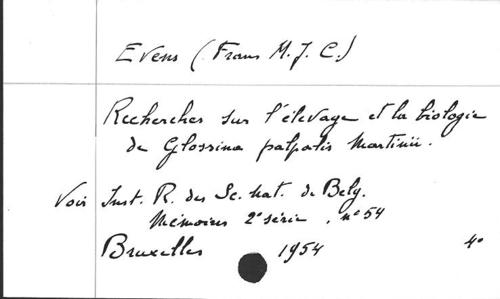 Evens (Frans M.J.C.)
Recherches sur l'élevage et la biologie
de Glossina palpalis Martinii.
Voir Inst. R. des Sc. nat. de Belg.
Mémoires 2e série, no 54
Bruxelles 1954 4o